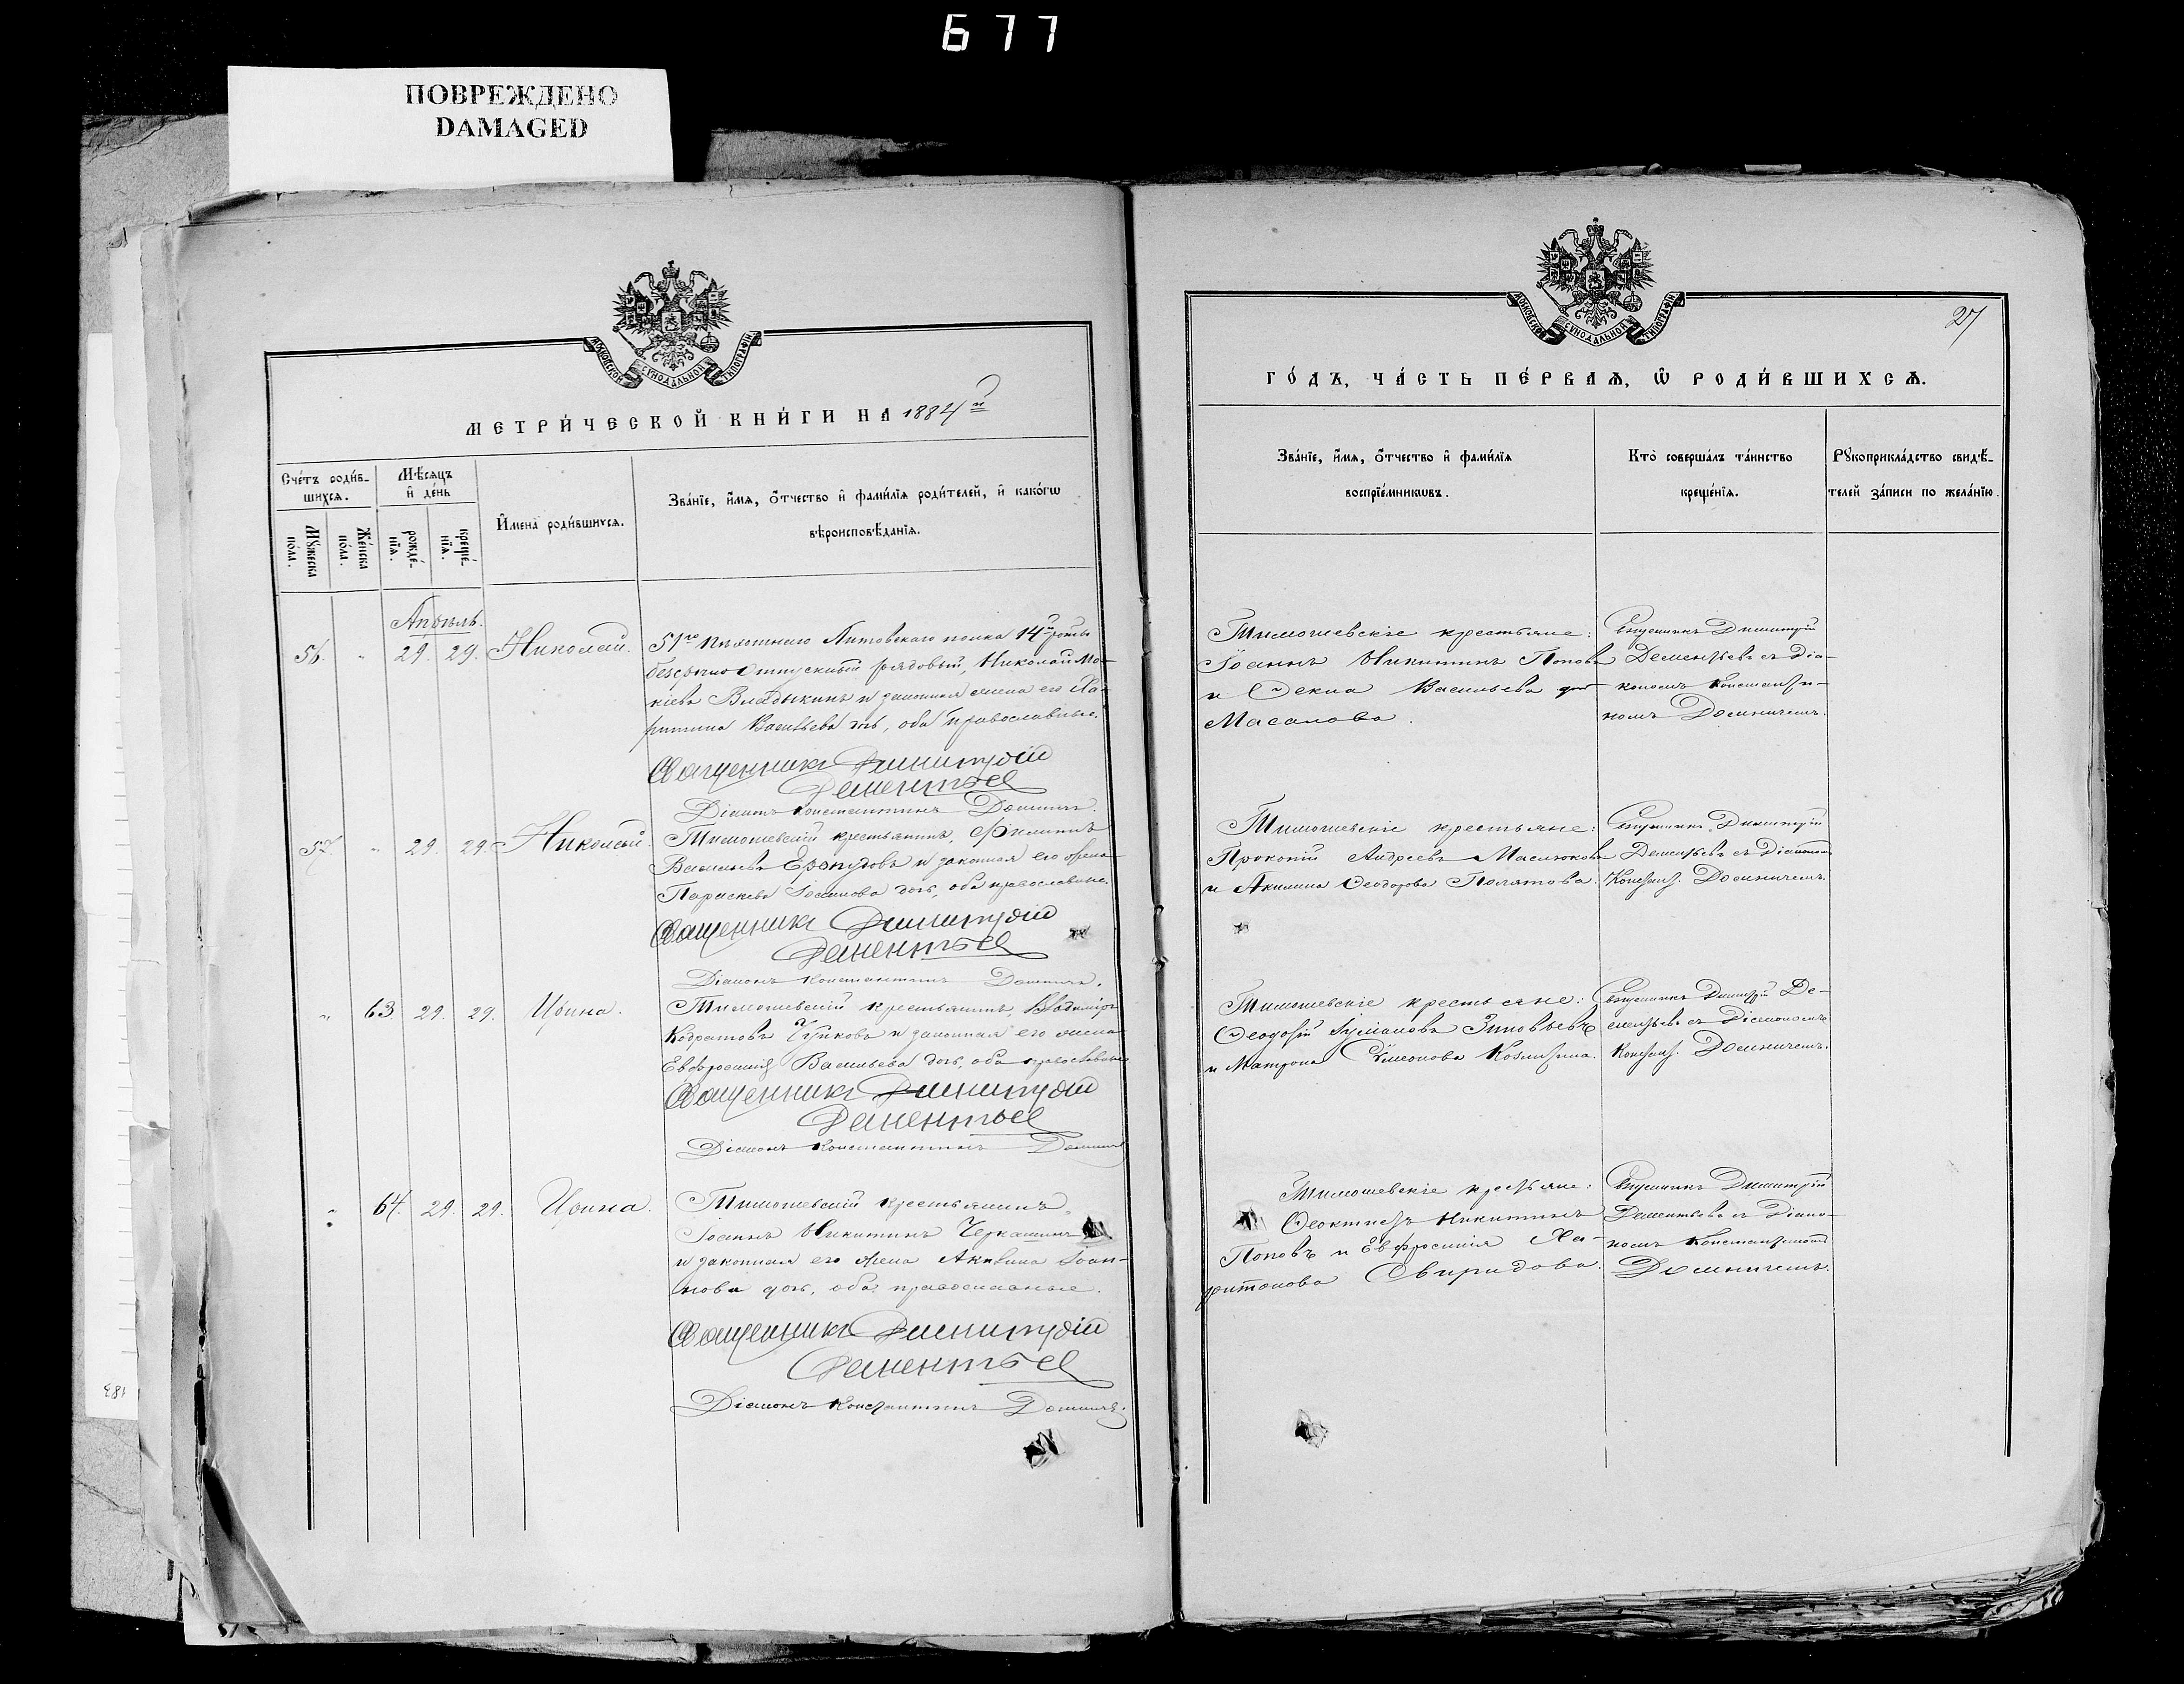 677
ПОВРЕЖДЕНО
DAMAGED
МОСКОВСКОЙ СѴНОДАЛЬНОЙ ТИПОГРАФІИ
МЕТРИ́ЧЕСКОЙ КНИ́ГИ НА 1884й
Сче́тъ роди́в-
шихсѧ.
Мѣ́сѧцъ
и҆ де́нь
Мꙋ́жеска
по́ла.
Же́нска
по́ла.
рожде́-
нїѧ.
креще́-
нїѧ.
И҆мена̀ роди́вшихсѧ.
Зва́нїе, и҆́мѧ, ѻ҆́тчество и҆ фами́лїѧ роди́телей, и҆ како́гѡ
вѣроисповѣ́данїѧ.
Апрѣль.
56. " 29. 29. Николай.
51го пѣхотнаго Литовскаго полка 14й роты
безсрочно отпускной рядовый, Николай Мо-
кіевъ Владыкинъ и законная жена его Ха-
ритина Васильева дочь, оба православные.
Священникъ Димитрій
Дементьевъ
Діаконъ Константинъ
57. " 29. 29. Николай.
Тимошевскій крестьянинъ, Филиппъ
Васильевъ и законная его жена
Параскева Іоаннова дочь, оба православные.
Священникъ Димитрій
Дементьевъ
Діаконъ Константинъ
" 63 29. 29. Ирина.
Тимошевскій крестьянинъ,
Кодратовъ и законная его жена
Евфросинія Васильева дочь, оба православные
Священникъ Димитрій
Дементьевъ
Діаконъ Константинъ
" 64. 29. 29. Ирина.
Тимошевскій крестьянинъ,
Іоаннъ Никитинъ Черкашинъ
и законная его жена Акилина Іоан-
нова дочь, оба православные.
Священникъ Димитрій
Дементьевъ
Діаконъ Константинъ
183
МОСКОВСКОЙ СѴНОДАЛЬНОЙ ТИПОГРАФІИ
27
ГО́ДЪ, ЧА́СТЬ ПЕ́РВАѦ, Ѽ РОДИ́ВШИХСѦ.
Зва́нїе, и҆́мѧ, ѻ҆́тчество и҆ фами́лїѧ
воспрїе́мникѡвъ.
Кто̀ соверша́лъ та́инство
креще́нїѧ.
Рꙋкоприкла́дство свидѣ́-
телей за́писи по жела́нїю.
Тимошевскіе крестьяне:
Іоаннъ Никитинъ Поповъ
и Ѳекла Васильева дочь
Масалова.
Священникъ Димитрій
Дементьевъ съ Діа-
кономъ Константи-
номъ
Тимошевскіе крестьяне:
Прокопій Андреевъ Маслюковъ
и Акилина Ѳеодорова
Священникъ Димитрій
Дементьевъ съ Діакономъ
Констант.
Тимошевскіе крестьяне:
Ѳеодосій Зиновьевъ
и Матрона Симеонова
Священникъ Димитрій Де-
ментьевъ съ Діакономъ
Констант.
Тимошевскіе крестьяне:
Ѳеоктистъ Никитинъ
Поповъ и Евфросинія Ха-
ритонова Свиридова.
Священникъ Димитрій
Дементьевъ съ Діако-
номъ Константиномъ